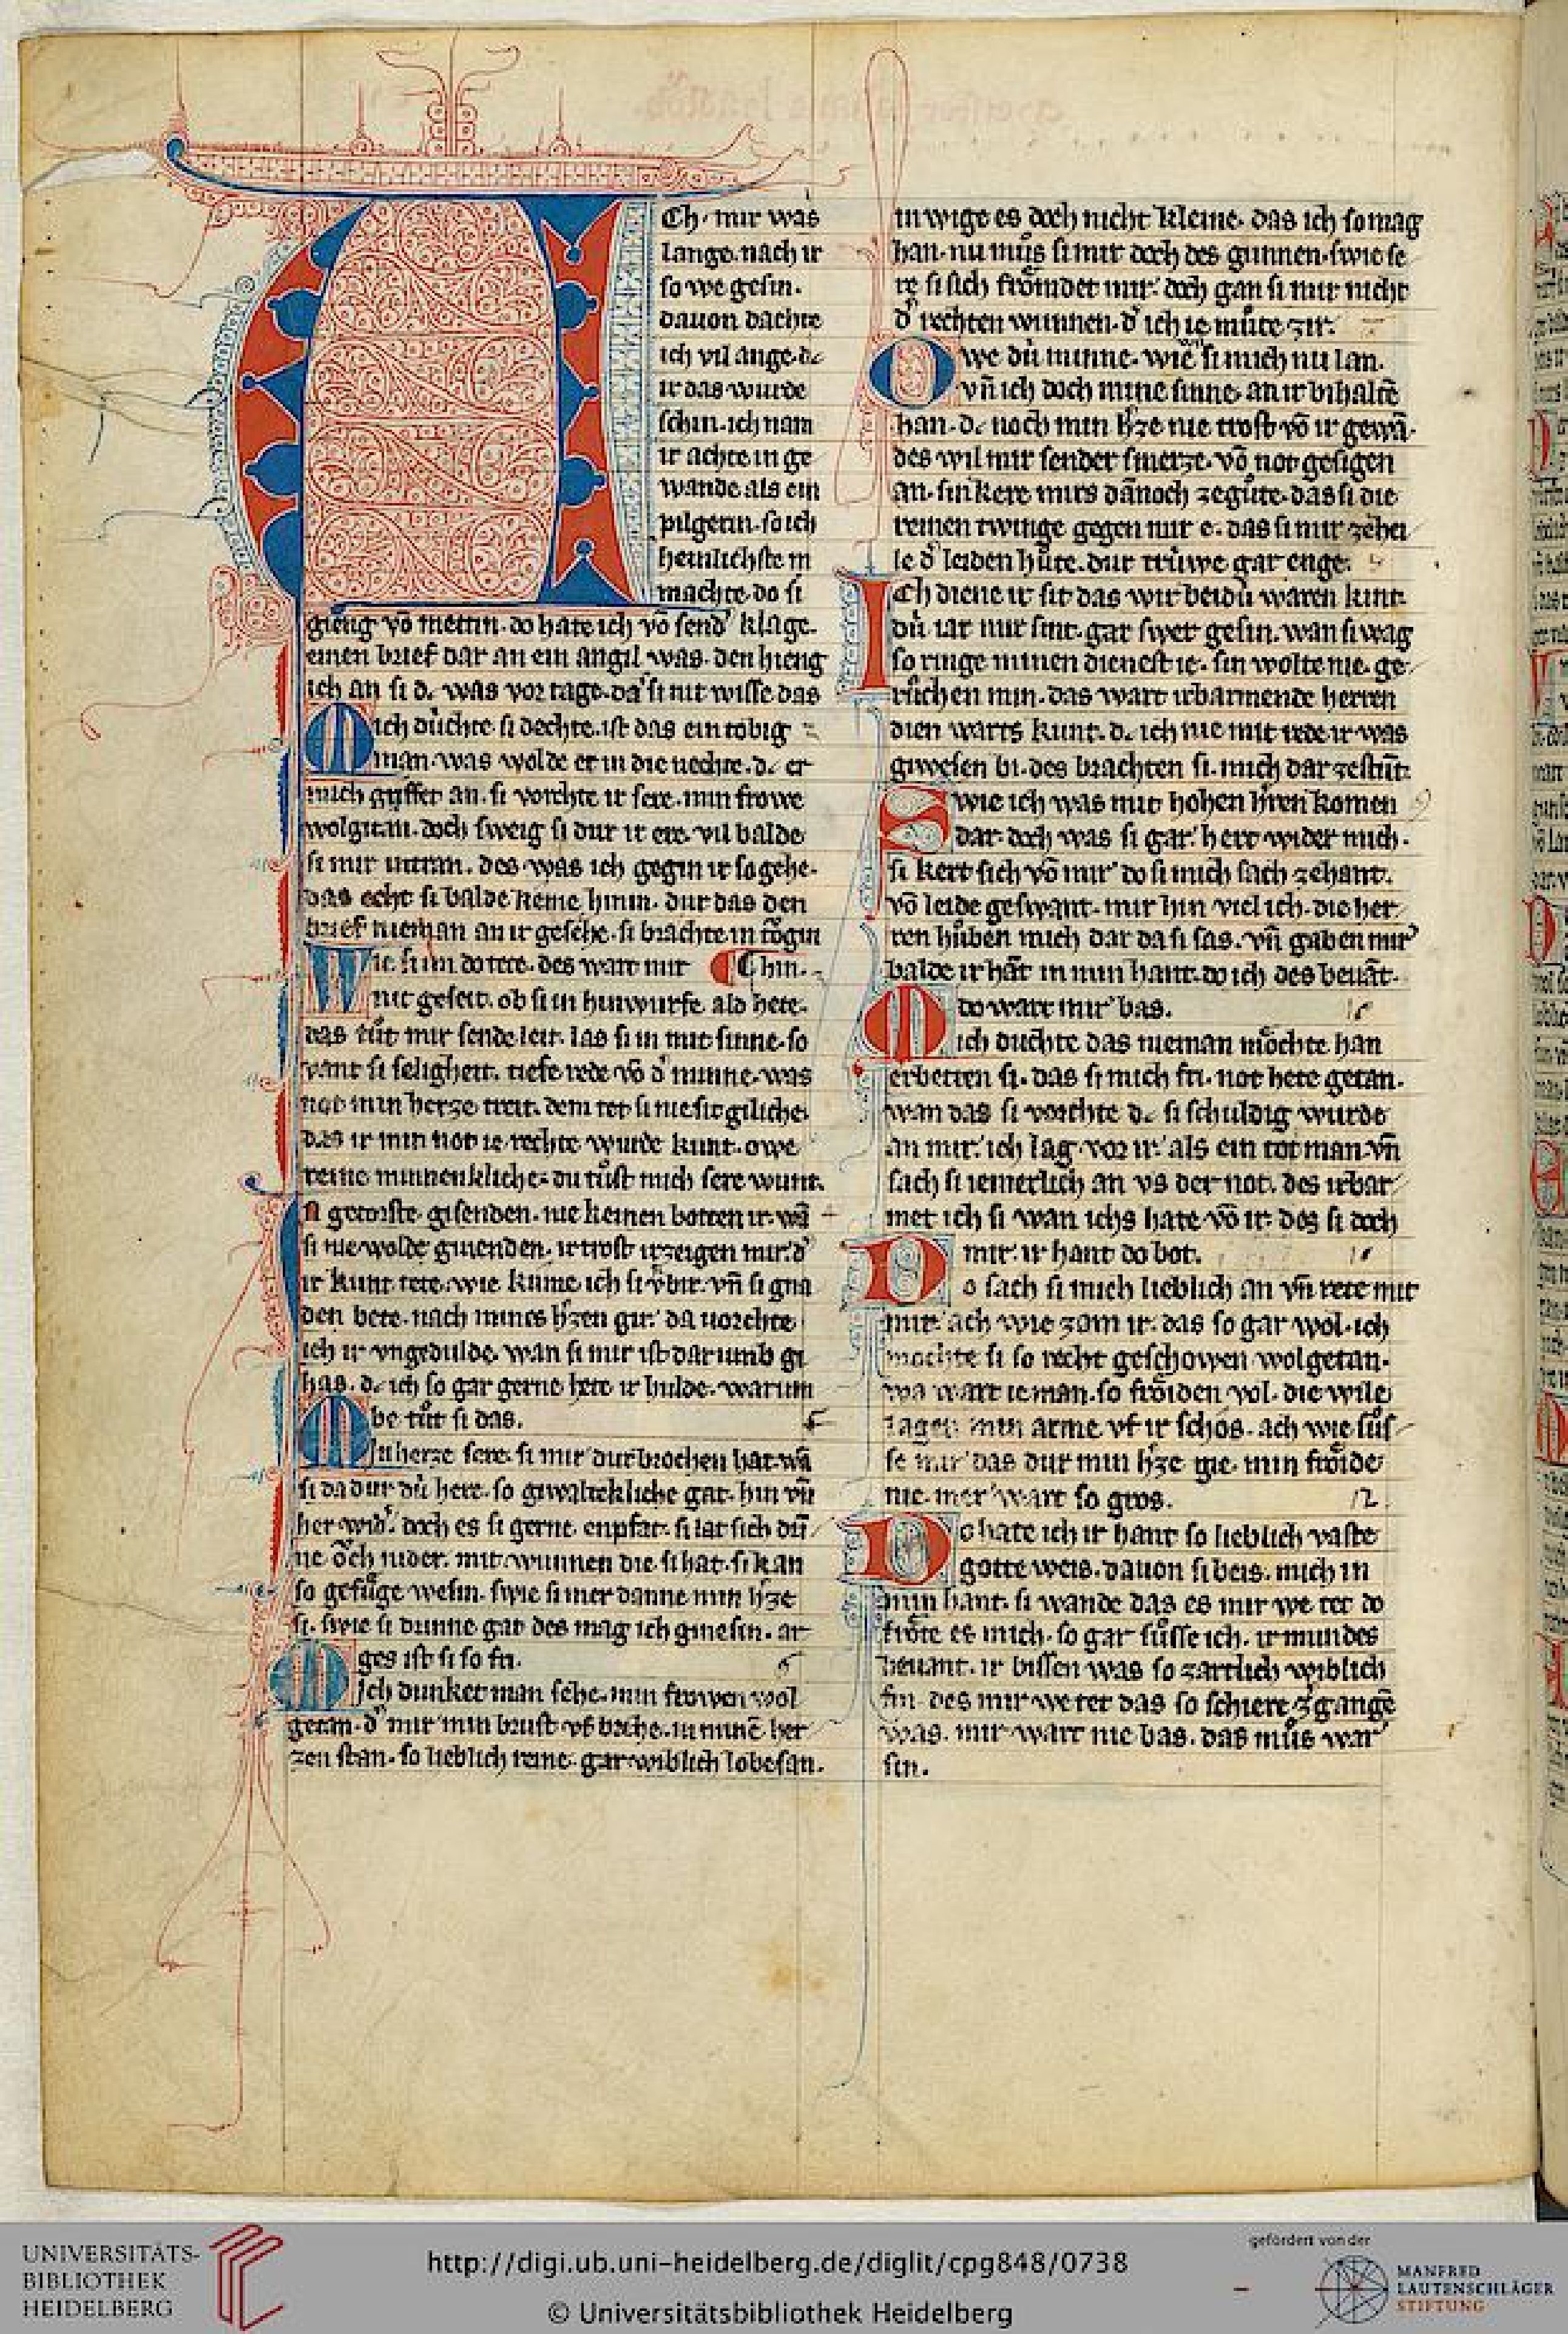 Ch mir was
lange nach ir
so we gesin.
dauon dachte
ich vil ange. dc
ir das wurde
schin. ich nam
ir achte in ge
wande als ein
pilgerin. so ich
heinlichste m
machte. do si
gieng võ mettin. do hate ich võ send̾ klage.
einen brief dar an ein angil was. den hieng
ich an si dc was vor tage. da si nit wisse das
Mich důchte si dechte. ist das ein tobig
man. was wolde er in die nechte. dc er
mich griffet an. si vorchte ir sere. min frowe
wolgitan. doch sweig si dur ir ere. vil balde
si mir intran. des was ich gegin ir so gehe.
das echt si balde keme hinin. dur das den
brief nieman an ir gesehe. si brachte in tögin
Wie si im do tete. des wart mir Chin.
nit geseit. ob si in hinwurfe ald hete.
das tůt mir sende leit. las si in mit sinne. so
vant si seligheit. tiefe rede võ d̾ minne. was
not min herze treit. dem tet si nie sit giliche.
das ir min not ie rechte wurde kunt. owe
reine minnenkliche. du tůst mich sere wunt.
In getorste gisenden. nie keinen botten ir. wã
si nie wolde gnienden. ir trost irzeigen mir. d̾
ir kunt tete. wie kume ich si v̾bir. vñ si gna
den bete. nach mines h̾zen gir. da uorchte
ich ir vngedulde. wan si mir ist dar umb gi
has. dc ich so gar gerne hete ir hulde. warum
be tůt si das.
Min herze sere. si mir dur brochen hat. wã
si da dur dů here. so giwaltekliche gat. hin vñ
her wid̾. doch es si gerne enpfat. si lat sich dũ
ne öch nider. mit wunnen die si hat. si kan
so gefůge wesin. swie si mer danne min h̾ze
si. swie si drinne gat des mag ich gnesin. ar
ges ist si so fri.
Mich dunket man sehe. min frowen wol
getan. d̾ mir min brust vf breche. in minẽ her
zen stan. so lieblich reine. gar wiblich lobesan.
in wige es doch nicht kleine. das ich so mag
han. nu můs si mir doch des gunnen. swie se
re si sich fröindet mir. doch gan si mir nicht
d̾ rechten wunnen. d̾ ich ie můte zir.
Owe dů minne. wie si mich nu lan.
vñ ich doch mine sinne. an ir bihaltẽ
han. dc noch min h̾ze nie trost võ ir gewã.
des wil mir sender smerze. võ not gesigen
an. sin kere mirs dãnoch zegůte. das si die
reinen twinge gegen mir e. das si mir zehei
le d̾ leiden hůte. dur trůwe gar enge.
Ich diene ir sit das wir beidů waren kint.
dů iar mir sint. gar swer gesin. wan si wag
so ringe minen dienest ie. sin wolte nie. ge
růchen min. das wart irbarmende herren
dien warts kunt. dc ich nie mit rede ir was
giwesen bi. des brachten si. mich dar zestũt.
Swie ich was mit hohen h̾ren komen
dar. doch was si gar. hert wider mich.
si kert sich võ mir do si mich sach zehant.
võ leide geswant. mir hin viel ich. die her
ren hůben mich dar da si sas. vñ gaben mir
balde ir hãt in min hant. do ich des bevãt.
do wart mir bas.
Mich duchte das nieman möchte han
erbetten si. das si mich fri. not hete getan.
wan das si vorchte dc si schuldig wurde
an mir. ich lag vor ir. als ein tot man. vñ
sach si iemerlich an vs der not. des irbar
met ich si wan ichs hate võ ir. des si doch
mir. ir hant do bot.
Do sach si mich lieblich an vñ rete mit
mir. ach wie zam ir. das so gar wol. ich
mochte si so recht geschowen wolgetan.
wa wart ieman. so fröiden vol. die wile
lagen min arme vf ir schos. ach wie sůs
se mir das dur min h̾ze gie. min fröide
nie. mer wart so gros. 12
Do hate ich ir hant so lieblich vaste
gotte weis. dauon si beis. mich in
min hant. si wande das es mir we tet do
fröte es mich. so gar sůsse ich. ir mundes
beuant. ir bissen was so zartlich wiblich
fin. des mir we tet das so schiere z̾gangẽ
was. mir wart nie bas. das můs war
sin.
UNIVERSITÄTS-
BIBLIOTHEK
HEIDELBERG
http://digi.ub.uni-heidelberg.de/diglit/cpg848/0738
© Universitätsbibliothek Heidelberg
gefördert von der
MANFRED
LAUTENSCHLÄGER
STIFTUNG